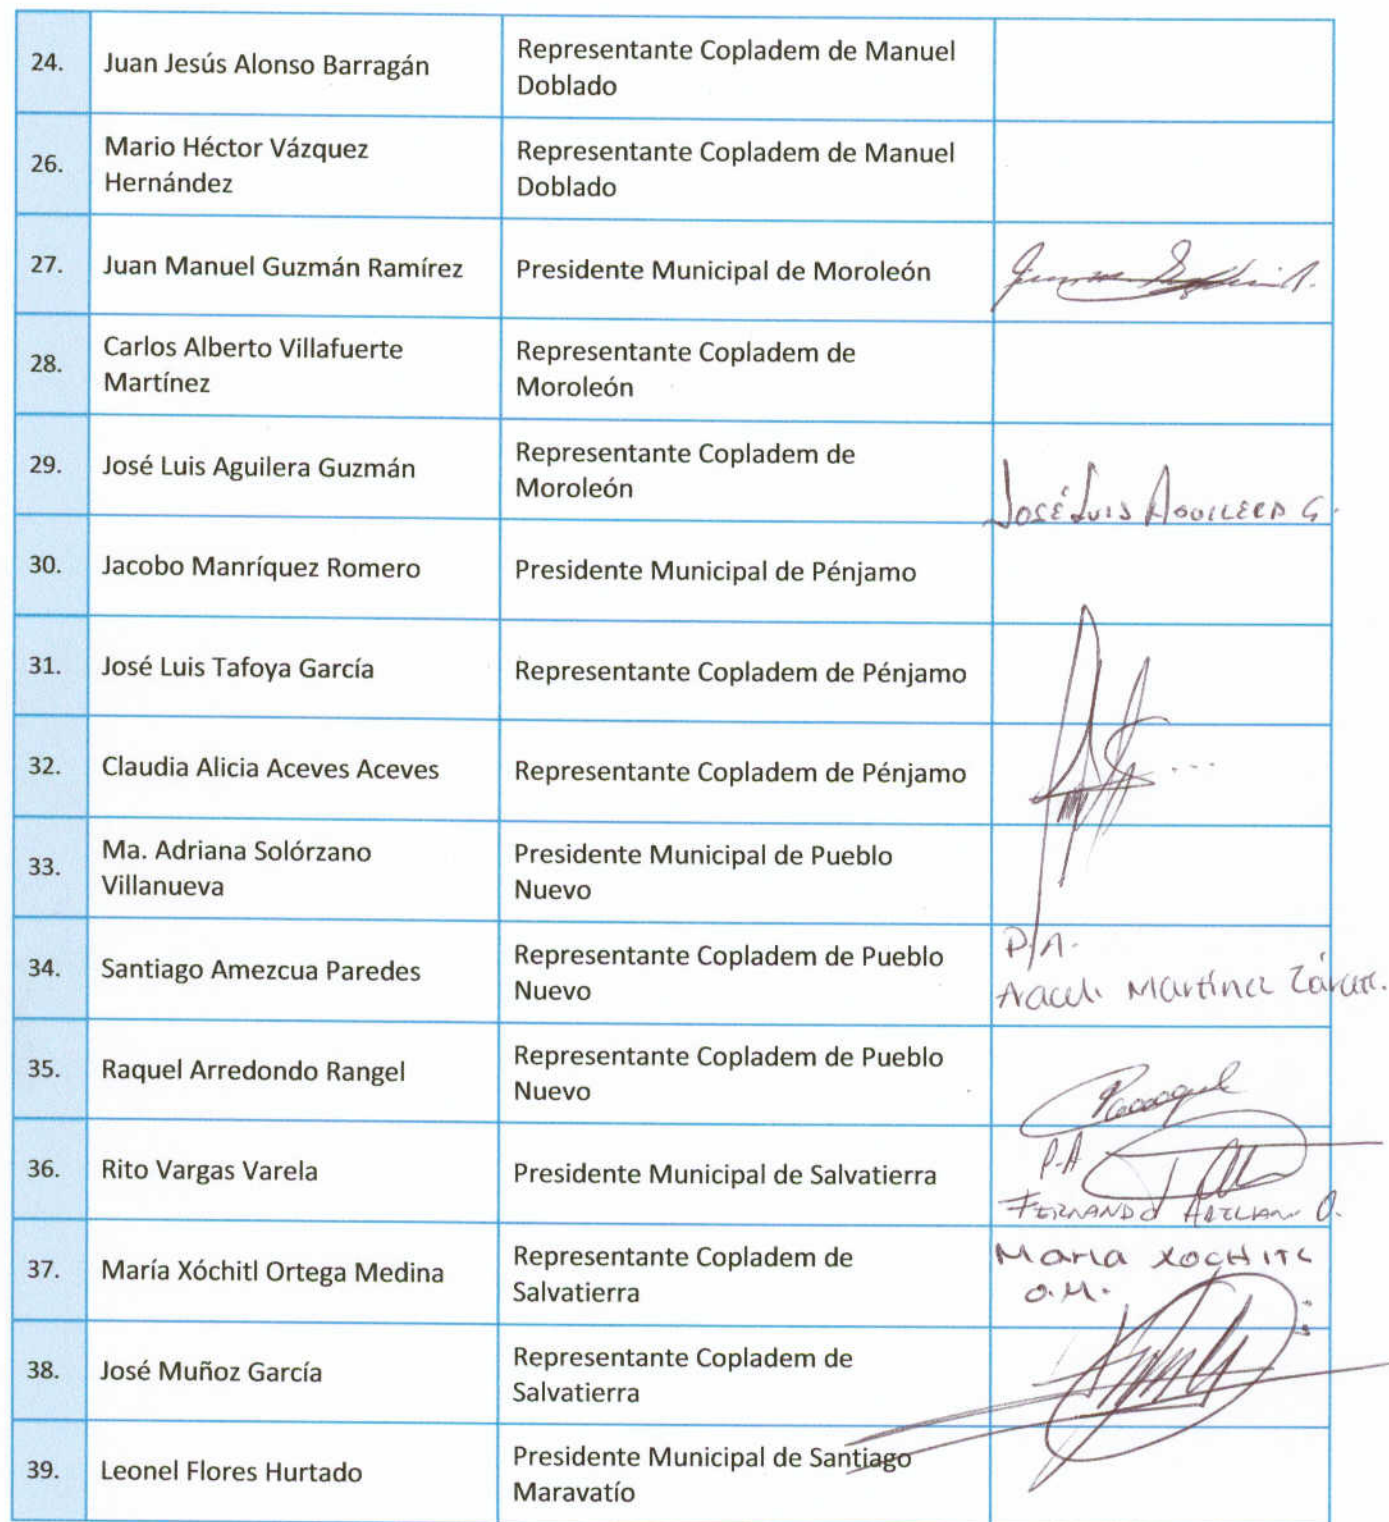 24. Juan Jesús Alonso Barragán Representante Copladem de Manuel
Doblado
26. Mario Héctor Vázquez
Hernández
Representante Copladem de Manuel
Doblado
27. Juan Manuel Guzmán Ramírez Presidente Municipal de Moroleón
28. Carlos Alberto Villafuerte
Martínez
Representante Copladem de
Moroleón
29. José Luis Aguilera Guzmán Representante Copladem de
Moroleón
José Luis Aguilera G.
30. Jacobo Manríquez Romero Presidente Municipal de Pénjamo
31. José Luis Tafoya García Representante Copladem de Pénjamo
32. Claudia Alicia Aceves Aceves Representante Copladem de Pénjamo
33. Ma. Adriana Solórzano
Villanueva
Presidente Municipal de Pueblo
Nuevo
34. Santiago Amezcua Paredes Representante Copladem de Pueblo
Nuevo
P/A.
Araceli Martínez Zárate.
35. Raquel Arredondo Rangel Representante Copladem de Pueblo
Nuevo
36. Rito Vargas Varela Presidente Municipal de Salvatierra
P.A
FERNANDO
37. María Xóchitl Ortega Medina Representante Copladem de
Salvatierra
Maria XOCHITL
O.M.
38. José Muñoz García Representante Copladem de
Salvatierra
39. Leonel Flores Hurtado Presidente Municipal de Santiago
Maravatío